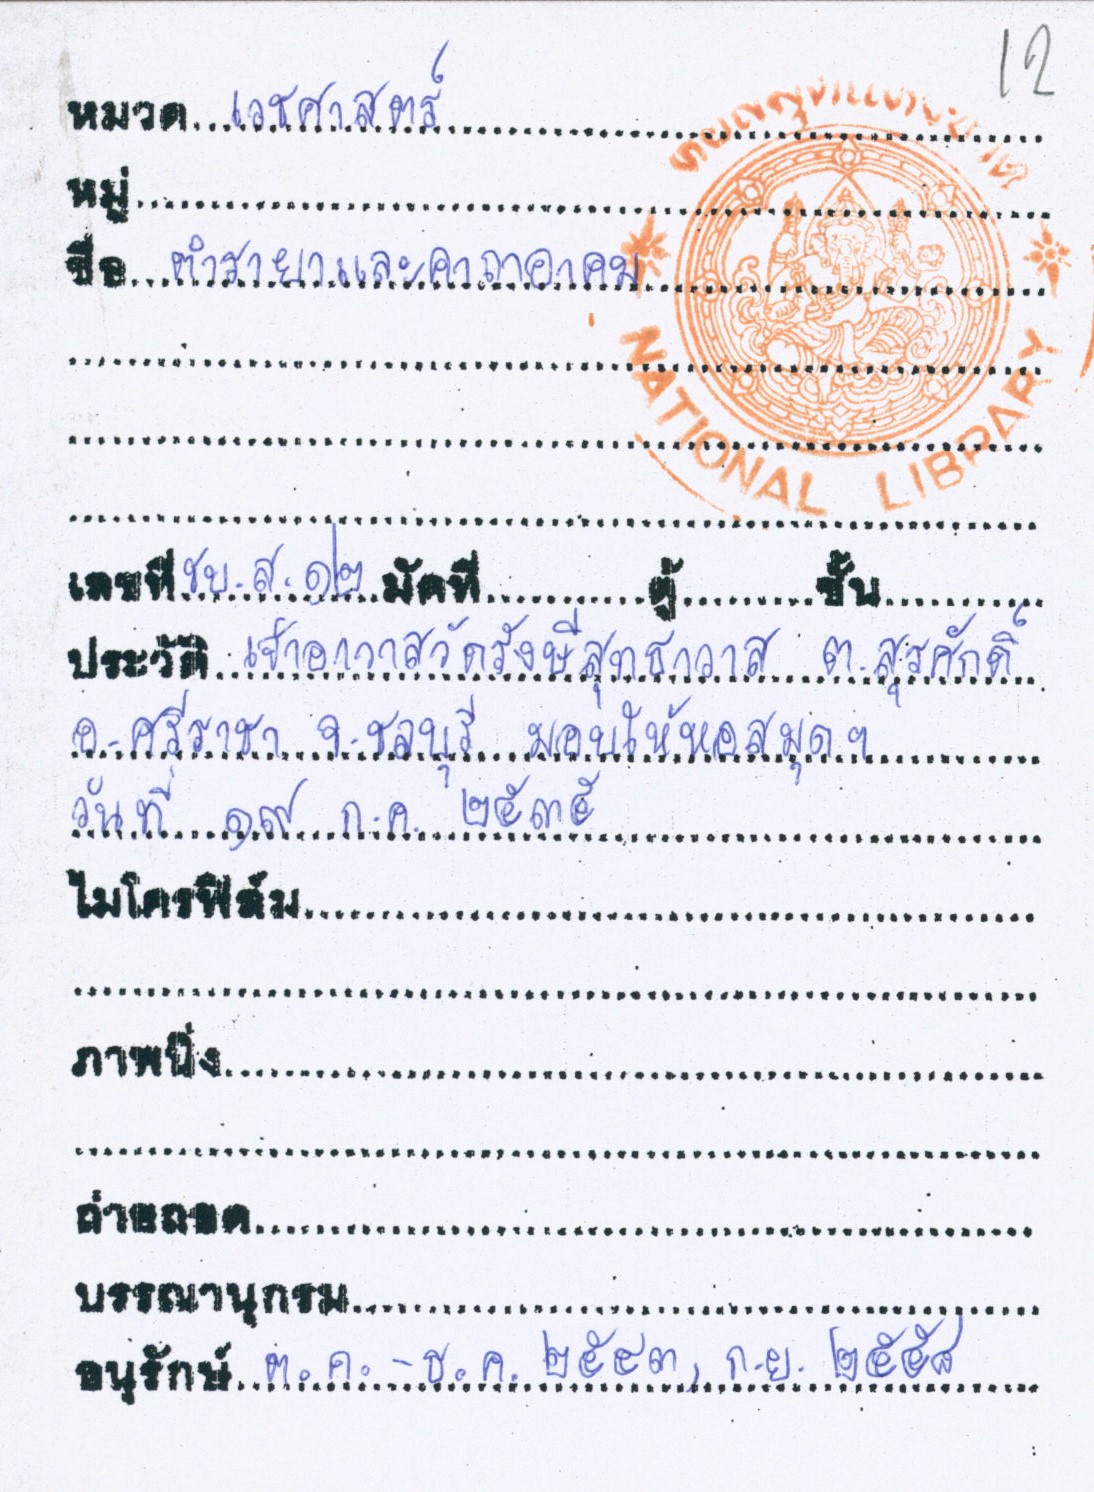 12
หอสมุดแห่งชาติ
NATIONAL LIBRARY
หมวด เวชศาสตร์
หมู่
ชื่อ ตำรายาและคาถาอาคม
เลขที่ ชบ.ส.๑๒ มัดที่ ตู้ ชั้น
ประวัติ เจ้าอาวาสวัดรังษีสุทธาวาส ต.สุรศักดิ์
อ.ศรีราชา จ.ชลบุรี มอบให้หอสมุดฯ
วันที่ ๑๙ ก.ค. ๒๕๓๕
ไมโครฟิล์ม
ภาพนิ่ง
ถ่ายถอด
บรรณานุกรม
อนุรักษ์ ต.ค. - ธ.ค. ๒๕๔๓, ก.ย. ๒๕๕๘